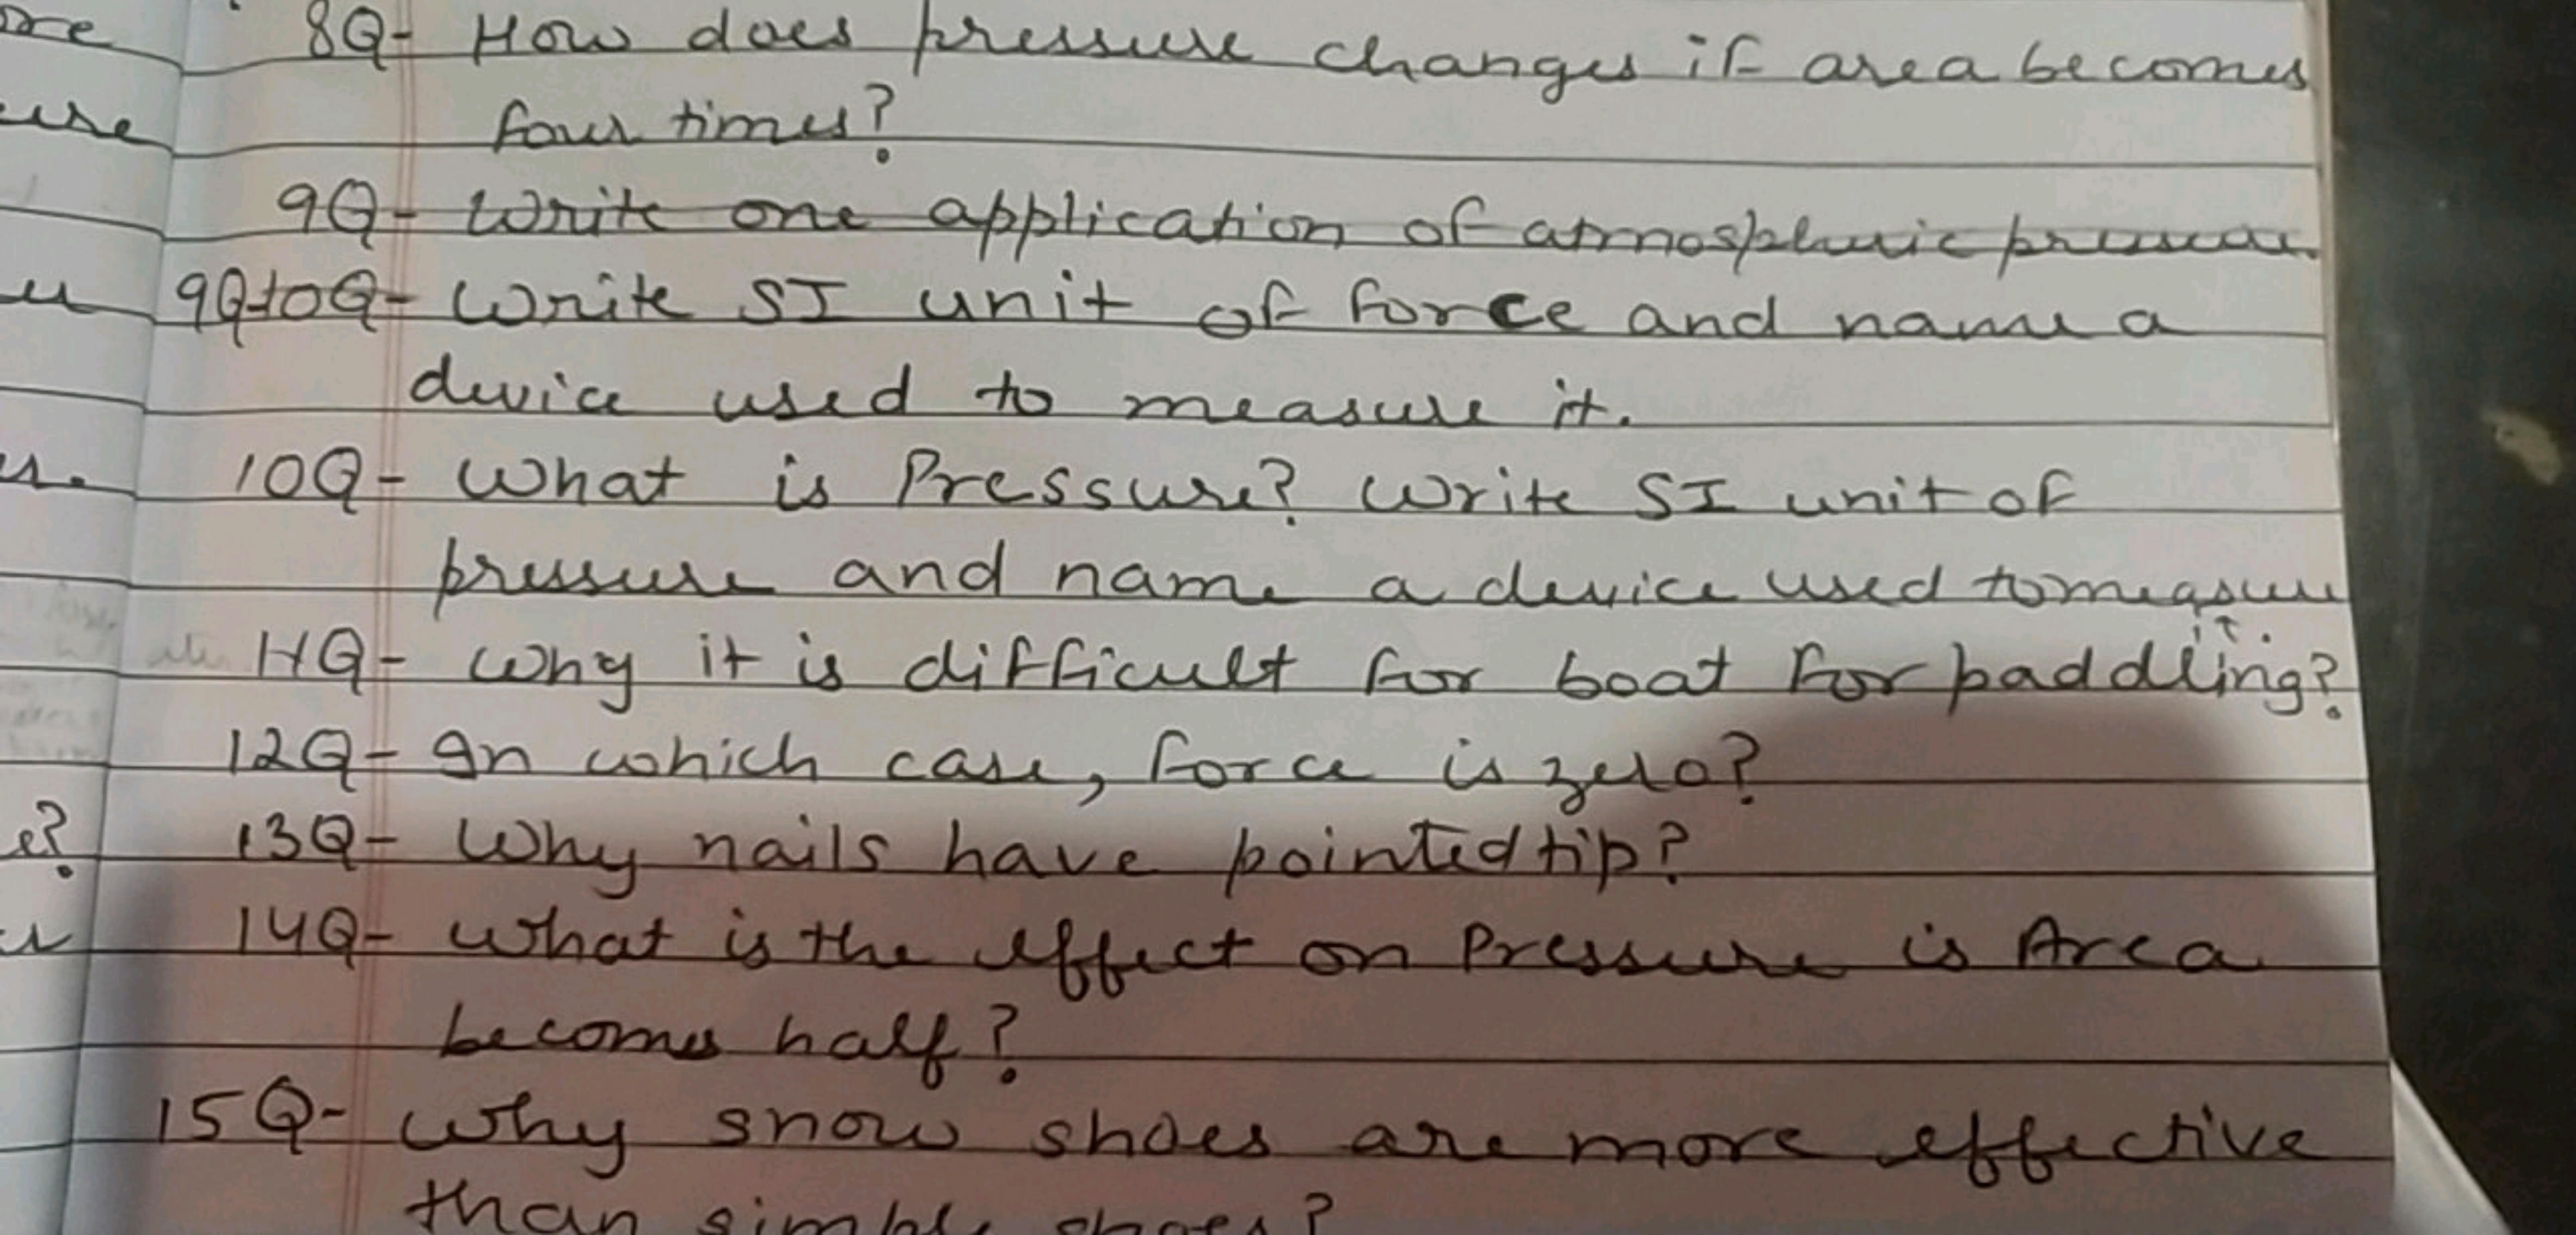 ore
8Q- How does pressure changes if area becomes
ure
four times?
9Q- Write one application of atmospheric pressure.
9Q 10Q- Write SI unit of force and name a
device used to measure it.
10Q- What is Pressure? Write SI unit of
pressure and name a device used to measure
it.
11Q- Why it is difficult for boat for paddling?
12Q- In which case, force is zero?
e?
13Q- Why nails have pointed tip?
14Q- What is the effect on Pressure is Area
becomes half?
15Q- Why snow shoes are more effective
than simple shoes?